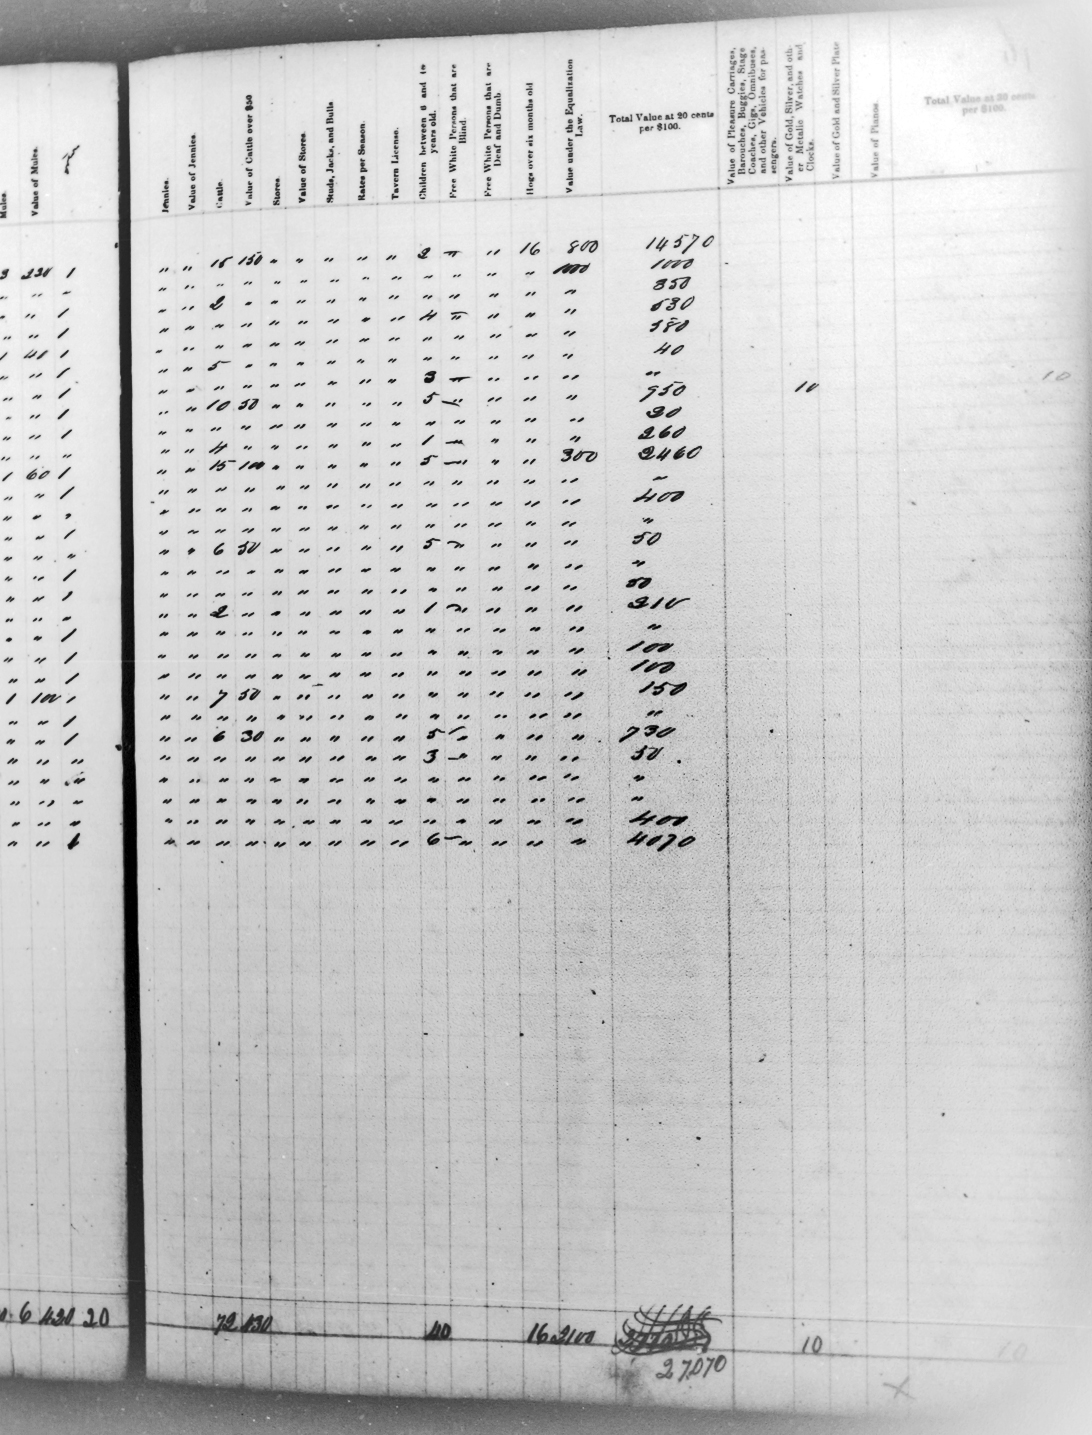 Mules. Value of Mules. Jennies. Value of Jennies. Cattle. Value of Cattle over $50 Stores. Value of Stores. Studs, Jacks, and Bulls Rates per Season. Tavern License. Children between 6 and 18 years old. Free White Persons that are Blind. Free White Persons that are Deaf and Dumb. Hogs over six months old Value under the Equalization Law. Total Value at 20 cents per $100. Value of Pleasure Carriages, Barouches, Buggies, Stage Coaches, Gigs, Omnibuses, and other Vehicles for passengers. Value of Gold, Silver, and other Metalic Watches and Clocks. Value of Gold and Silver Plate Value of Pianos. Total Value at 30 cents per $100.
3 230 1 " " 15 150 " " " " " 2 " " 16 800 14570
" " " " " " " " " " " " " " " " 1000 1000
" " 1 " " 2 " " " " " " " " " " " 350
" " 1 " " " " " " " " " 4 " " " " 530
1 40 1 " " " " " " " " " " " " " " 580
" " 1 " " 5 " " " " " " " " " " " 40
" " 1 " " " " " " " " " 3 " " " " "
" " 1 " " 10 50 " " " " " 5 " " " " 950 10 10
" " 1 " " " " " " " " " " " " " " 30
" " " " " 4 " " " " " " 1 " " " " 260
1 60 1 " " 15 100 " " " " " 5 " " " 300 2460
" " 1 " " " " " " " " " " " " " " "
" " " " " " " " " " " " " " " " " 400
" " 1 " " " " " " " " " " " " " " "
" " " " " 6 50 " " " " " 5 " " " " 50
" " 1 " " " " " " " " " " " " " " "
" " 1 " " " " " " " " " " " " " " 50
" " " " " 2 " " " " " " 1 " " " " 210
" " 1 " " " " " " " " " " " " " " "
" " 1 " " " " " " " " " " " " " " 100
" " 1 " " " " " " " " " " " " " " 100
1 100 1 " " 7 50 " " " " " " " " " " 150
" " 1 " " " " " " " " " " " " " " "
" " 1 " " 6 30 " " " " " 5 " " " " 730
" " " " " " " " " " " " 3 " " " " 50
" " " " " " " " " " " " " " " " " "
" " " " " " " " " " " " " " " " " "
" " " " " " " " " " " " " " " " " 400
" " 1 " " " " " " " " " 6 " " " " 4070
6 420 20 72 430 40 16 2100 10 10
27070
X